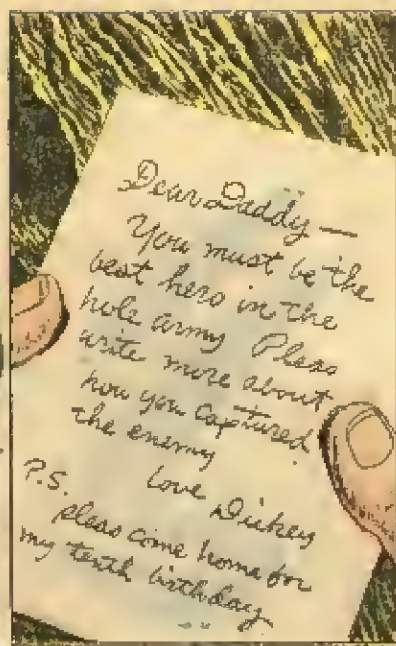 Dear Daddy—
You must be the
best hero in the
hole army Pleas
write more about
how you captured
the enemy
Love Dickey
P.S.
pleas come home for
my tenth birthday